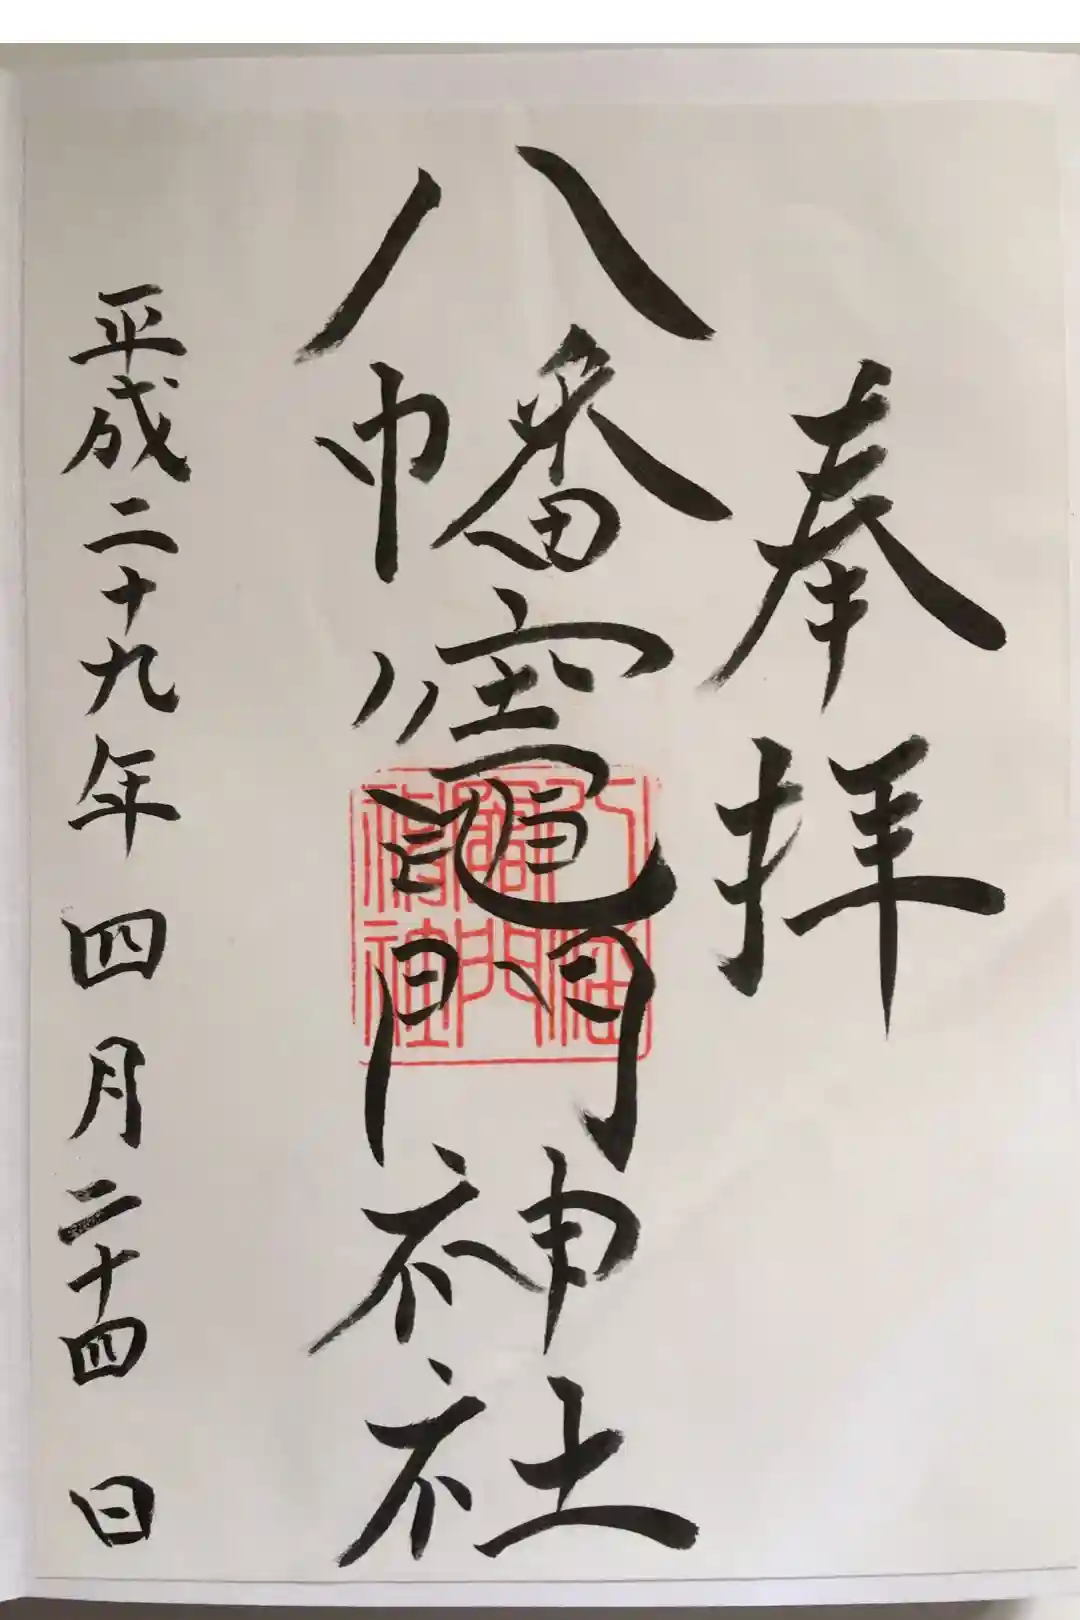 奉拝
八幡竈門神社
八幡竈門神社
平成二十九年四月二十四日